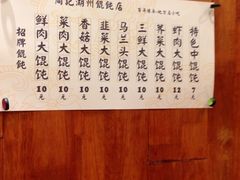 周记湖州馄饨店
百年传承·地方名小吃
特色中馄饨 7元
虾肉大馄饨 12元
荠菜大馄饨 10元
三鲜大馄饨 10元
马兰头大馄饨 10元
韭菜大馄饨 10元
香菇大馄饨 10元
菜肉大馄饨 10元
鲜肉大馄饨 10元
招牌馄饨